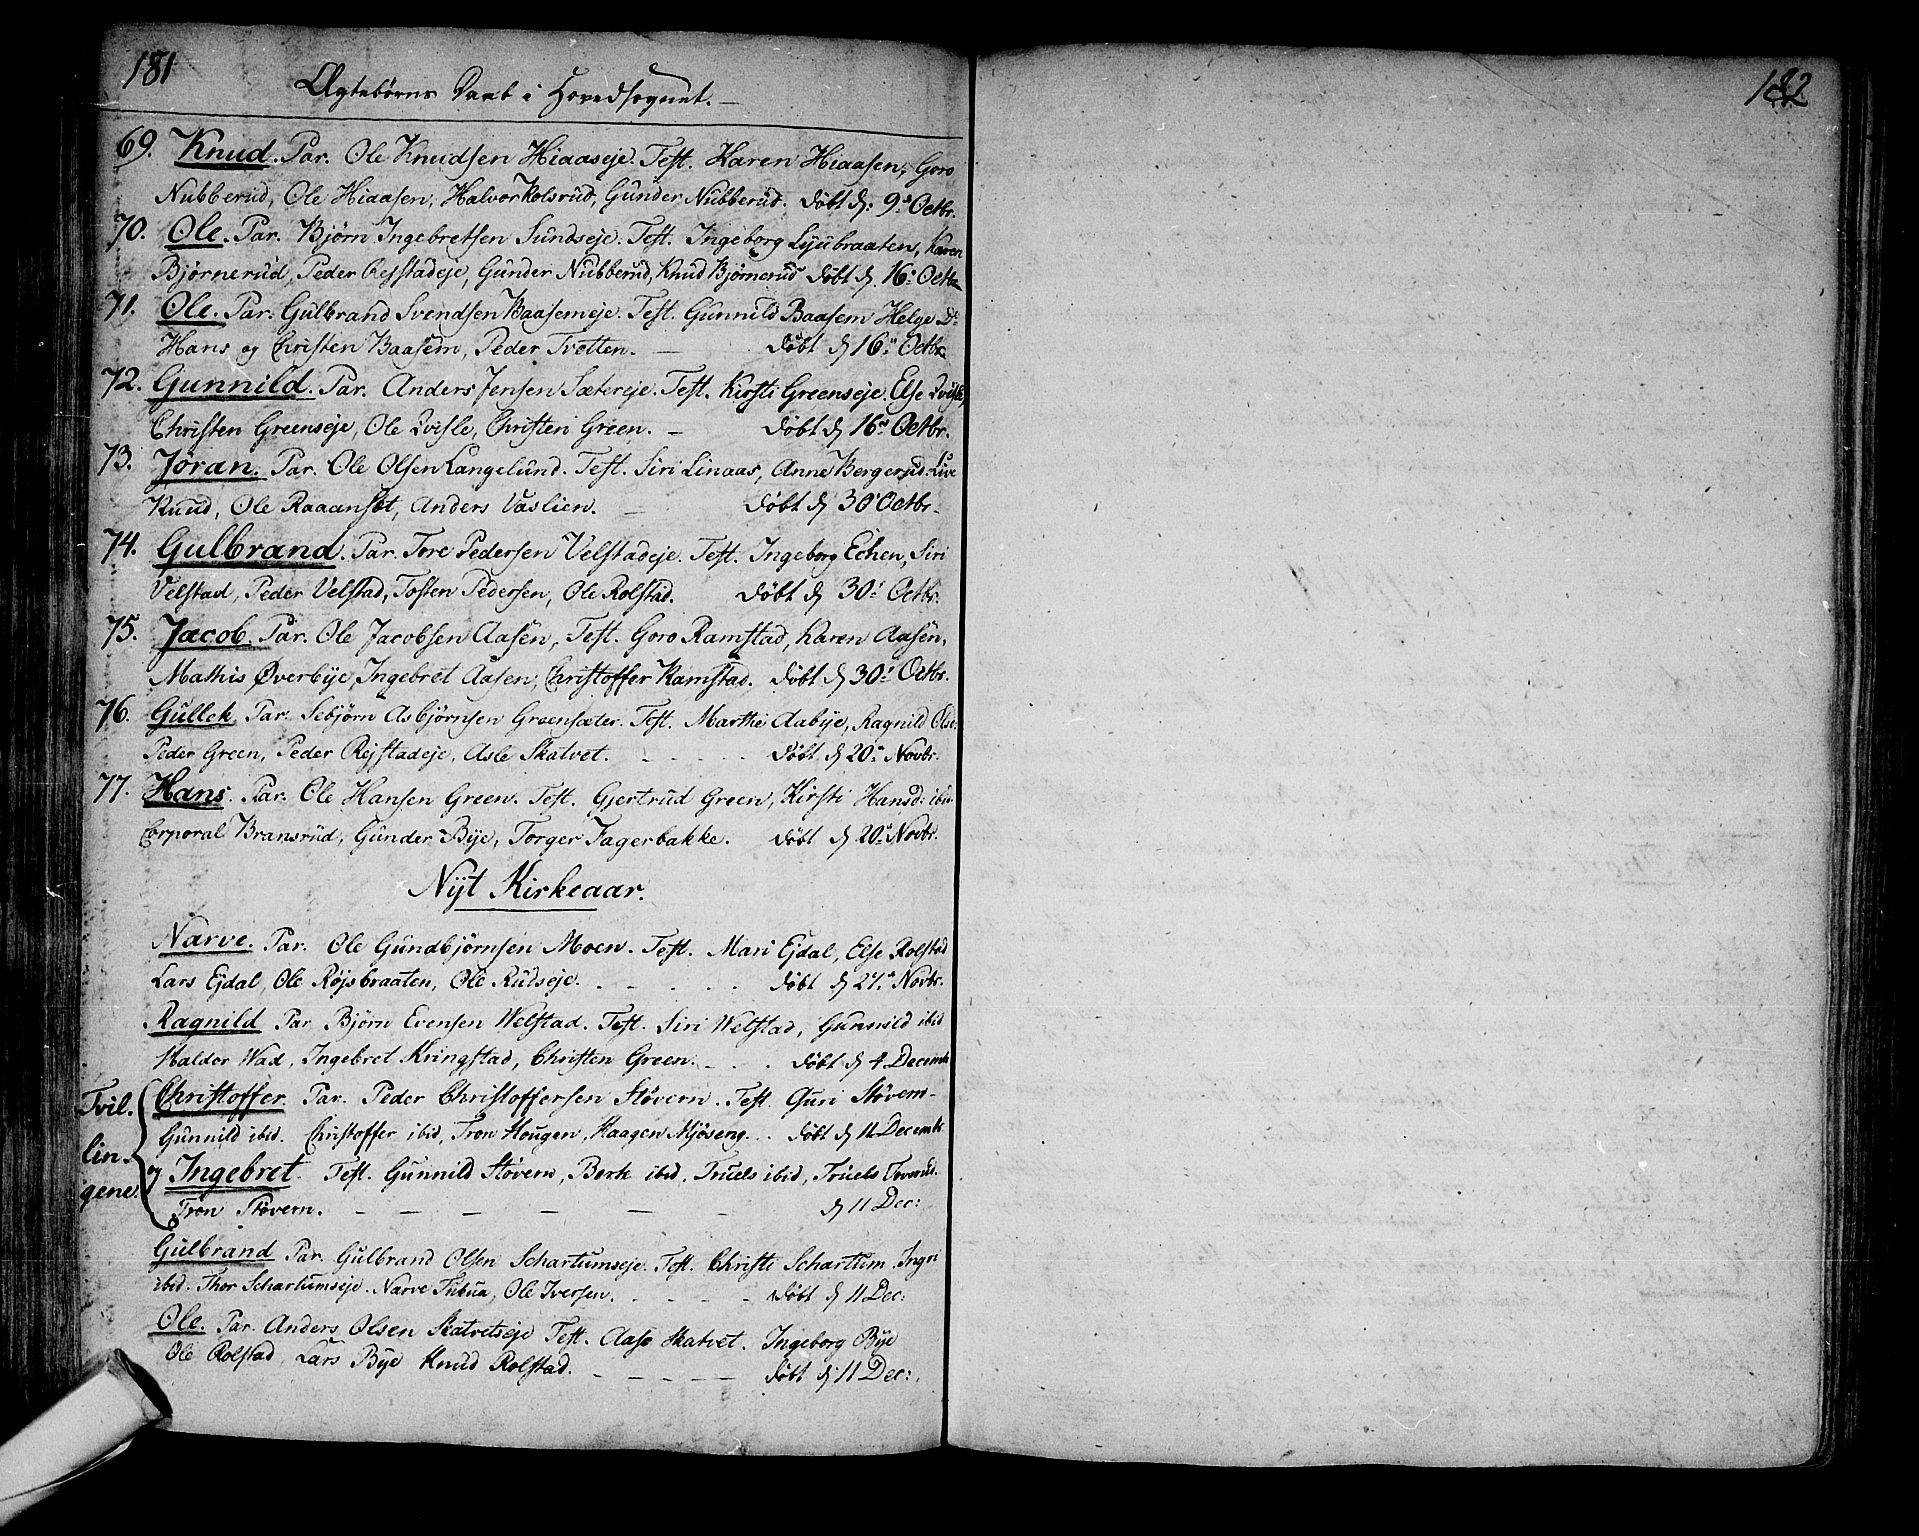 181
Ægtebørns Daab i Hovedsognet. —
69. Knud. Par. Ole Knudsen Hiaaseje. Test. Karen Hiaasen, Goro
Nubberud, Ole Hiaasen, Halvor Kolsrud, Gunder Nubberud. døbt d: 9de Octbr.
70. Ole. Par. Bjørn Ingebretsen Sundseje. Test. Ingeborg Lyubraaten, Karen
Bjørnerud, Peder Rejstadeje, Gunder Nubberud, Knud Bjørnerud døbt d 16 Octbr
71. Ole. Par. Gulbrand Svendsen Baasemeje. Test. Gunnild Baasem Helge Do
Hans og Christen Baasem, Peder Tvetten. — døbt d 16de Octbr
72. Gunnild. Par. Anders Jensen Sætereje. Test. Kirsti Greenseje. Else Qvisle,
Christen Greenseje, Ole Qvisle, Christen Green. — døbt d 16de Octbr.
73. Jøran. Par. Ole Olsen Langelund. Test. Siri Linaas, Anne Bergerud, Live
Knud, Ole Raaanset, Anders Vaslien. — døbt d 30 Octbr.
74. Gulbrand. Par. Tore Pedersen Velstadeje. Test. Ingeborg Echen, Siri
Velstad, Peder Velstad, Tosten Pedersen, Ole Rolstad. døbt d 30: Octbr.
75. Jacob. Par. Ole Jacobsen Aasen, Test. Goro Ramstad, Karen Aasen,
Mathis Øverbye, Ingebret Aasen, Christoffer Ramstad. døbt d 30: Octbr.
76. Gullek Par. Sebjørn Asbjørnsen Greensæter. Test. Marthe Aabye, Ragnild Olsd:
Peder Green, Peder Rejstadeje, Asle Skatvet. - - - døbt d 20de Novbr.
77. Hans. Par. Ole Hansen Green. Test. Gjertrud Green, Kirsti Hansd: ibid.
Corporal Bransrud, Gunder Bye, Torger Fagerbakke. døbt d 20de Novbr.
Nyt Kirkeaar.
Narve. Par. Ole Gundbjørnsen Moen. Test. Mari Ejdal, Else Rolstad
Lars Ejdal, Ole Røjsbraaten, Ole Rudseje. - - - døbt d 27de Novbr.
Ragnild Par Bjørn Evensen Welstad. Test. Siri Welstad, Gunnild ibid
Haldor Wad, Ingebret Kringstad, Christen Green. - - døbt d 4 Decembr
Tvil- Christoffer. Par. Peder Christoffersen Støvern. Test. Guri Støvern-
Gunnild ibid. Christoffer ibid, Tron Hougen, Haagen Mjøseng. . døbt d 11 Decembr
lin- og Ingebret. Test. Gunnild Støvern, Berk ibid, Truels ibid, Truels Tovsrud.
gene. Tron Støvern. — — — — — d 11 Dec:
Gulbrand Par. Gulbrand Olsen Schartumseje. Test. Christi Schartum. Ingri
ibid. Thor Schartumseje. Narve Tubua, Ole Iversen. - - - døbt d 11 Dec:
Ole. Par. Anders Olsen Skatvetseje Test. Aase Skatvet. Ingeborg Bye
Ole Rolstad, Lars Bye Knud Rolstad. - - - - - døbt d 11 Dec:
182